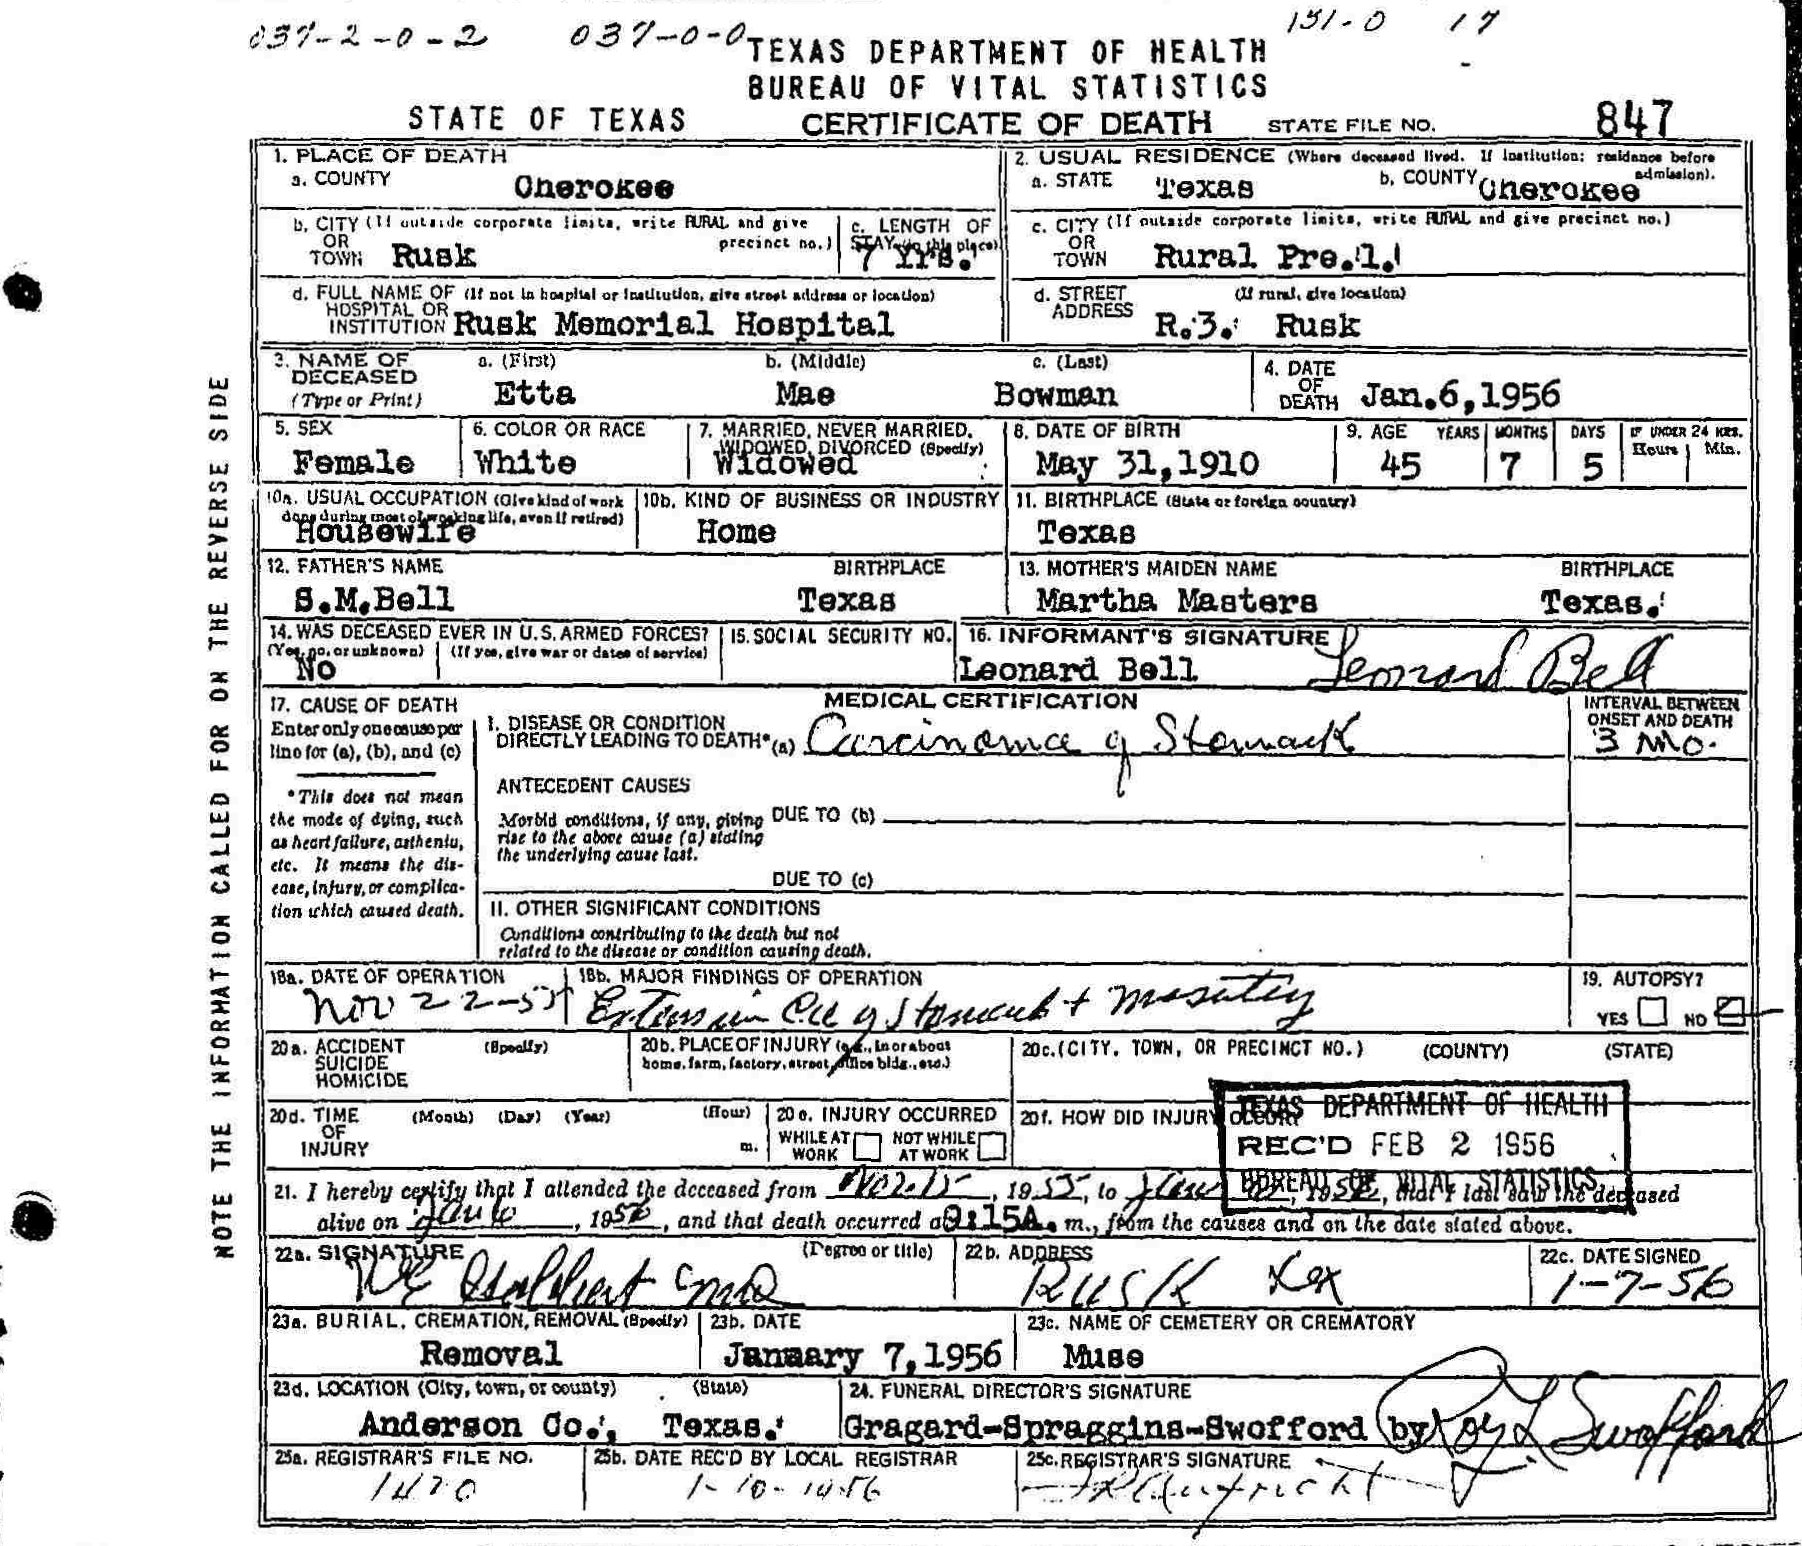 037-2-0-2 037-0-0 151-0 17
TEXAS DEPARTMENT OF HEALTH
BUREAU OF VITAL STATISTICS
STATE OF TEXAS CERTIFICATE OF DEATH STATE FILE NO. 847
NOTE THE INFORMATION CALLED FOR ON THE REVERSE SIDE
1. PLACE OF DEATH
a. COUNTY Cherokee
2. USUAL RESIDENCE (Where deceased lived. If institution: residence before admission).
a. STATE Texas b. COUNTY Cherokee
b. CITY (If outside corporate limits, write RURAL and give precinct no.)
OR
TOWN Rusk
c. LENGTH OF
STAY (in this place)
7 Yrs.
c. CITY (If outside corporate limits, write RURAL and give precinct no.)
OR
TOWN Rural Pre. 1.
d. FULL NAME OF (If not in hospital or institution, give street address or location)
HOSPITAL OR
INSTITUTION Rusk Memorial Hospital
d. STREET (If rural, give location)
ADDRESS R.3. Rusk
3. NAME OF DECEASED (Type or Print)
a. (First) b. (Middle) c. (Last)
Etta Mae Bowman
4. DATE OF DEATH Jan.6,1956
5. SEX
Female
6. COLOR OR RACE
White
7. MARRIED, NEVER MARRIED,
WIDOWED, DIVORCED (Specify)
Widowed
8. DATE OF BIRTH
May 31,1910
9. AGE YEARS MONTHS DAYS IF UNDER 24 HRS.
Hours Min.
45 7 5
10a. USUAL OCCUPATION (Give kind of work
done during most of working life, even if retired)
Housewife
10b. KIND OF BUSINESS OR INDUSTRY
Home
11. BIRTHPLACE (State or foreign country)
Texas
12. FATHER'S NAME BIRTHPLACE
S.M.Bell Texas
13. MOTHER'S MAIDEN NAME BIRTHPLACE
Martha Masters Texas.
14. WAS DECEASED EVER IN U.S. ARMED FORCES?
(Yes, no, or unknown) (If yes, give war or dates of service)
No
15. SOCIAL SECURITY NO.
16. INFORMANT'S SIGNATURE
Leonard Bell Leonard Bell
17. CAUSE OF DEATH
Enter only one cause per
line for (a), (b), and (c)
*This does not mean
the mode of dying, such
as heart failure, asthenia,
etc. It means the dis-
ease, injury, or complica-
tion which caused death.
MEDICAL CERTIFICATION
I. DISEASE OR CONDITION
DIRECTLY LEADING TO DEATH* (a) Carcinoma of Stomach
INTERVAL BETWEEN
ONSET AND DEATH
3 Mo.
ANTECEDENT CAUSES
Morbid conditions, if any, giving
rise to the above cause (a) stating
the underlying cause last.
DUE TO (b)
DUE TO (c)
II. OTHER SIGNIFICANT CONDITIONS
Conditions contributing to the death but not
related to the disease or condition causing death.
18a. DATE OF OPERATION
Nov 22-55
18b. MAJOR FINDINGS OF OPERATION
Extension of Stomach +
19. AUTOPSY?
YES NO
20a. ACCIDENT (Specify)
SUICIDE
HOMICIDE
20b. PLACE OF INJURY (e.g., in or about
home, farm, factory, street, office bldg., etc.)
20c. (CITY, TOWN, OR PRECINCT NO.) (COUNTY) (STATE)
20d. TIME (Month) (Day) (Year) (Hour)
OF
INJURY m.
20e. INJURY OCCURRED
WHILE AT WORK NOT WHILE AT WORK
20f. HOW DID INJURY OCCUR?
TEXAS DEPARTMENT OF HEALTH
REC'D FEB 2 1956
BUREAU OF VITAL STATISTICS
21. I hereby certify that I attended the deceased from Nov. 15, 1955, to Jan 6, 1956, that I last saw the deceased
alive on Jan 6, 1956, and that death occurred at 9:15A. m., from the causes and on the date stated above.
22a. SIGNATURE (Degree or title)
22b. ADDRESS
RUSK Tex
22c. DATE SIGNED
1-7-56
23a. BURIAL, CREMATION, REMOVAL (Specify)
Removal
23b. DATE
January 7,1956
23c. NAME OF CEMETERY OR CREMATORY
Muse
23d. LOCATION (City, town, or county) (State)
Anderson Co., Texas.
24. FUNERAL DIRECTOR'S SIGNATURE
Gragard-Spraggins-Swofford by Roy L Swofford
25a. REGISTRAR'S FILE NO.
1470
25b. DATE REC'D BY LOCAL REGISTRAR
1-10-1956
25c. REGISTRAR'S SIGNATURE